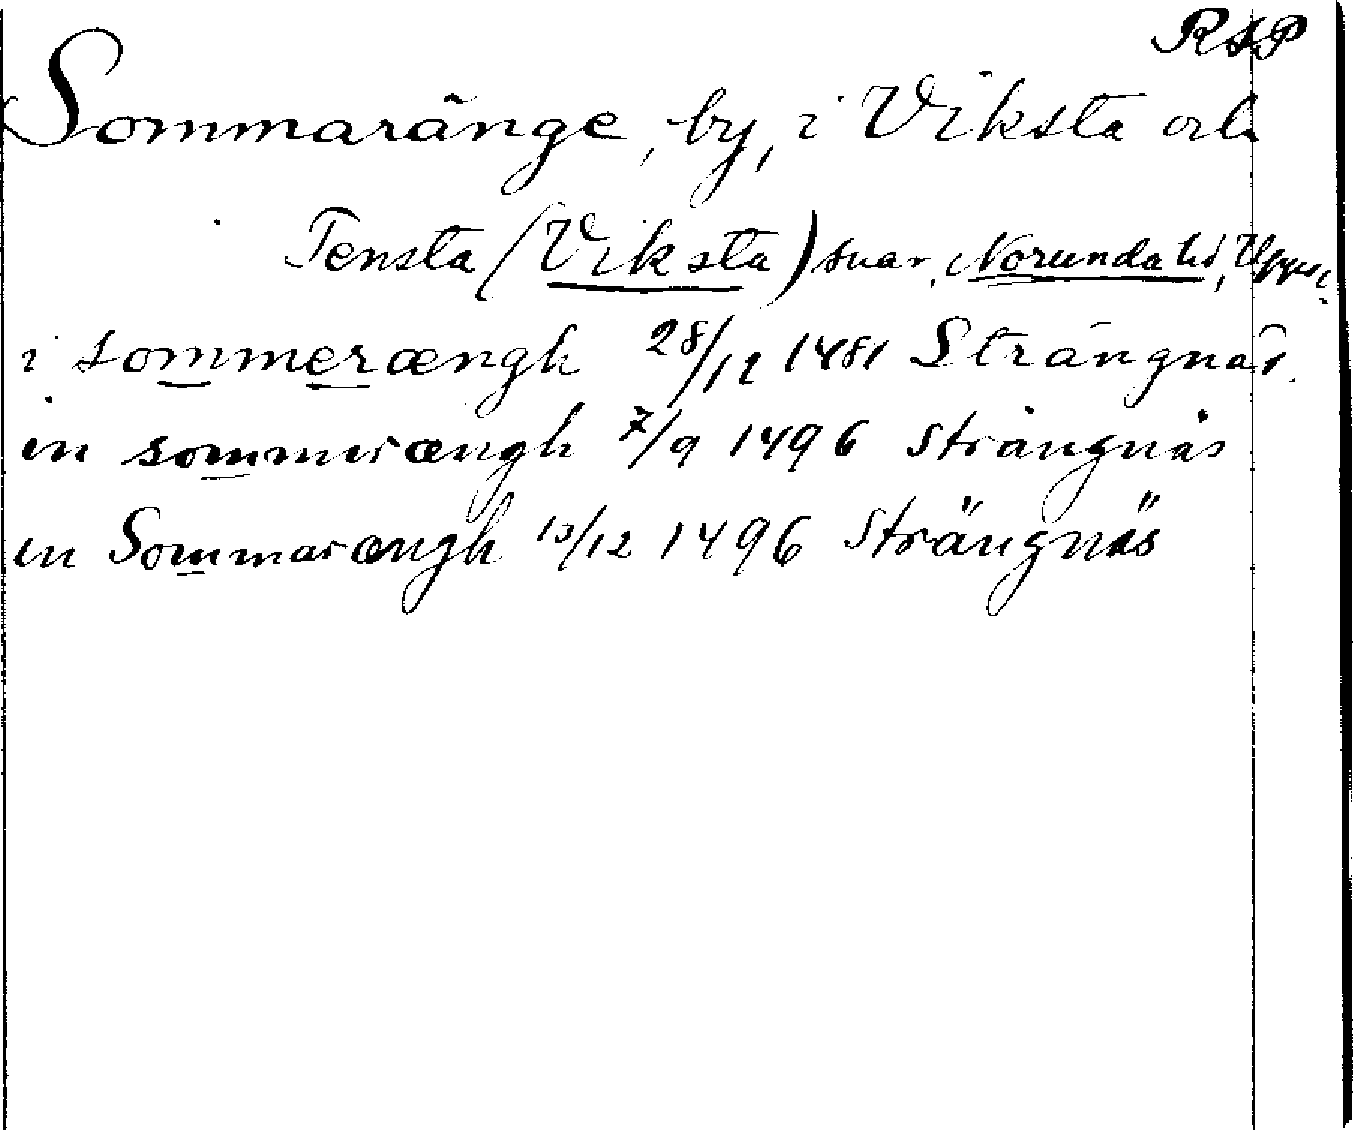 RAP
Sommaränge, by, i Viksta och
Tensta (Viksta) snar, Norunda hd, Upps.
i sommerængh 28/12 1481 Strängnäs.
in sommerængh 7/9 1496 Strängnäs
in Sommarængh 13/12 1496 Strängnäs